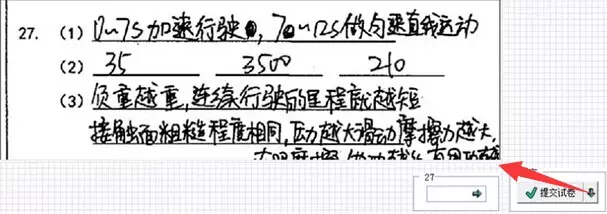 27. (1) 0~7s加速行驶, 7~12s做匀速直线运动
(2) 35 3500 210
(3) 负重越重,连续行驶的里程就越短
接触面粗糙程度相同,压力越大滑动摩擦力越大,
27
提交试卷